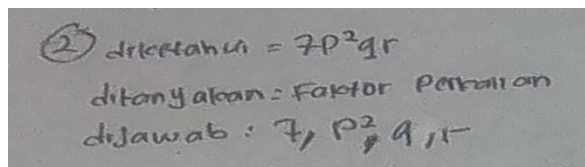 ② diketahui = 7p²qr
ditanyakan = Faktor Perkalian
diJawab : 7, p², q, r